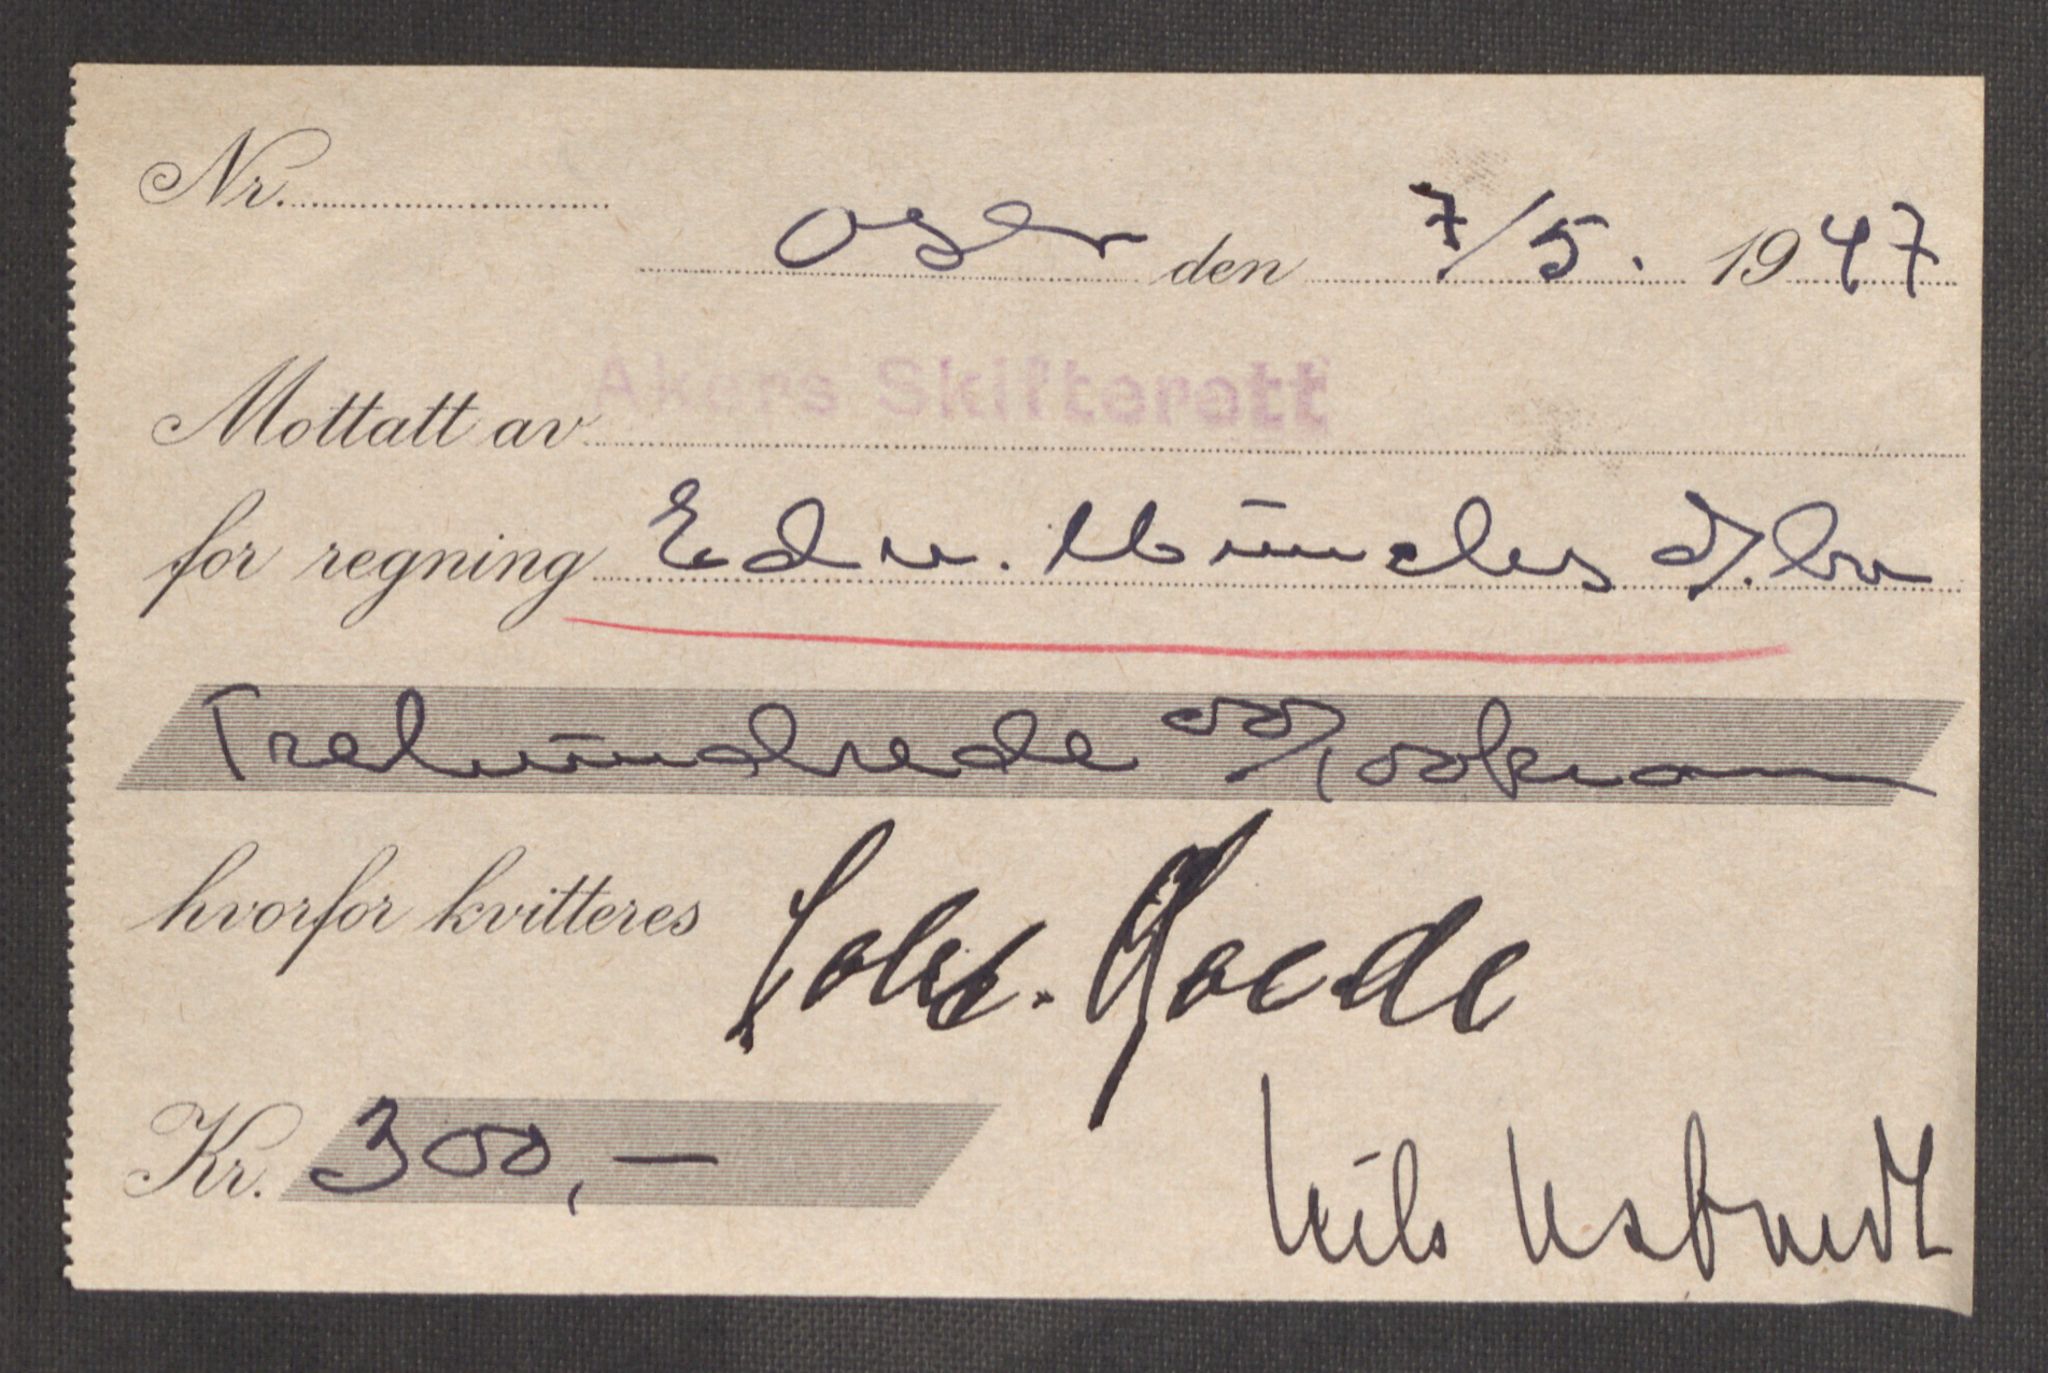 Nr.
Oslo den 7/5. 1947
Mottatt av Akers Skifterett
for regning Edv. Munchs d/bo
Trehundrede 00/100 kroner
hvorfor kvitteres Johs. Roede
Kr. 300,-
Nils